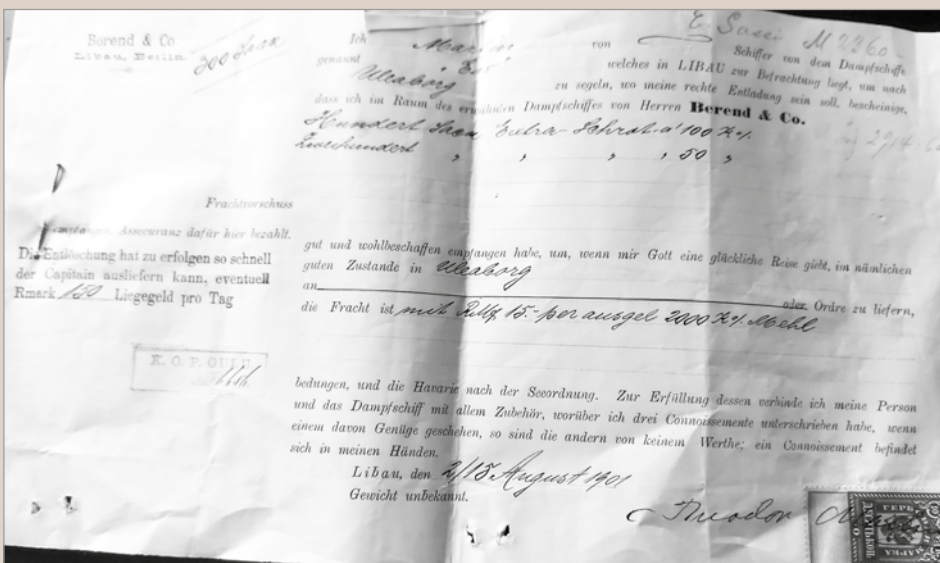 Borend & Co
Libau, Berlin.
300
Ich von
Schiffer von dem Dampfschiffe
genannt welches in LIBAU zur Befrachtung liegt, um nach
Uleaborg zu segeln, wo meine rechte Entladung sein soll, bescheinige,
dass ich im Raum des erwähnten Dampfschiffes von Herren Berend & Co.
Hundert Extra-Schrot a' 100
Zweihundert " " " " 50 "
Frachtvorschuss
empfangen, Assecuranz dafür hier bezahlt.
Die Entlöschung hat zu erfolgen so schnell
der Capitain ausliefern kann, eventuell
Rmark 150 Liegegeld pro Tag
gut und wohlbeschaffen empfangen habe, um, wenn mir Gott eine glückliche Reise giebt, im nämlichen
guten Zustande in Uleaborg
an oder Ordre zu liefern,
die Fracht ist mit 15.- per ausgel 2000 Mehl
K. O. P. OULU
bedungen, und die Havarie nach der Seeordnung. Zur Erfüllung dessen verbinde ich meine Person
und das Dampfschiff mit allem Zubehör, worüber ich drei Connoissemente unterschrieben habe, wenn
einem davon Genüge geschehen, so sind die andern von keinem Werthe; ein Connoissement befindet
sich in meinen Händen.
Libau, den 2/15 August 1901
Gewicht unbekannt.
Theodor